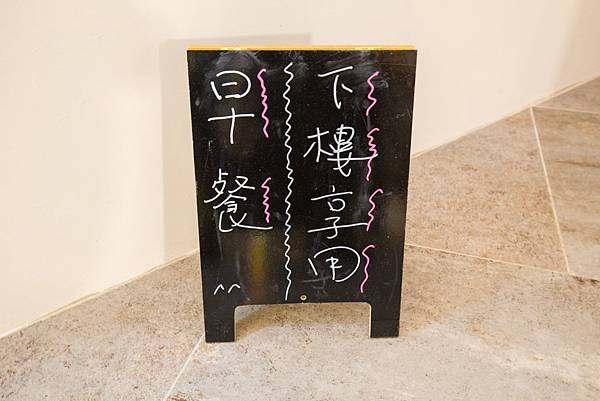 下樓享用
早餐^^